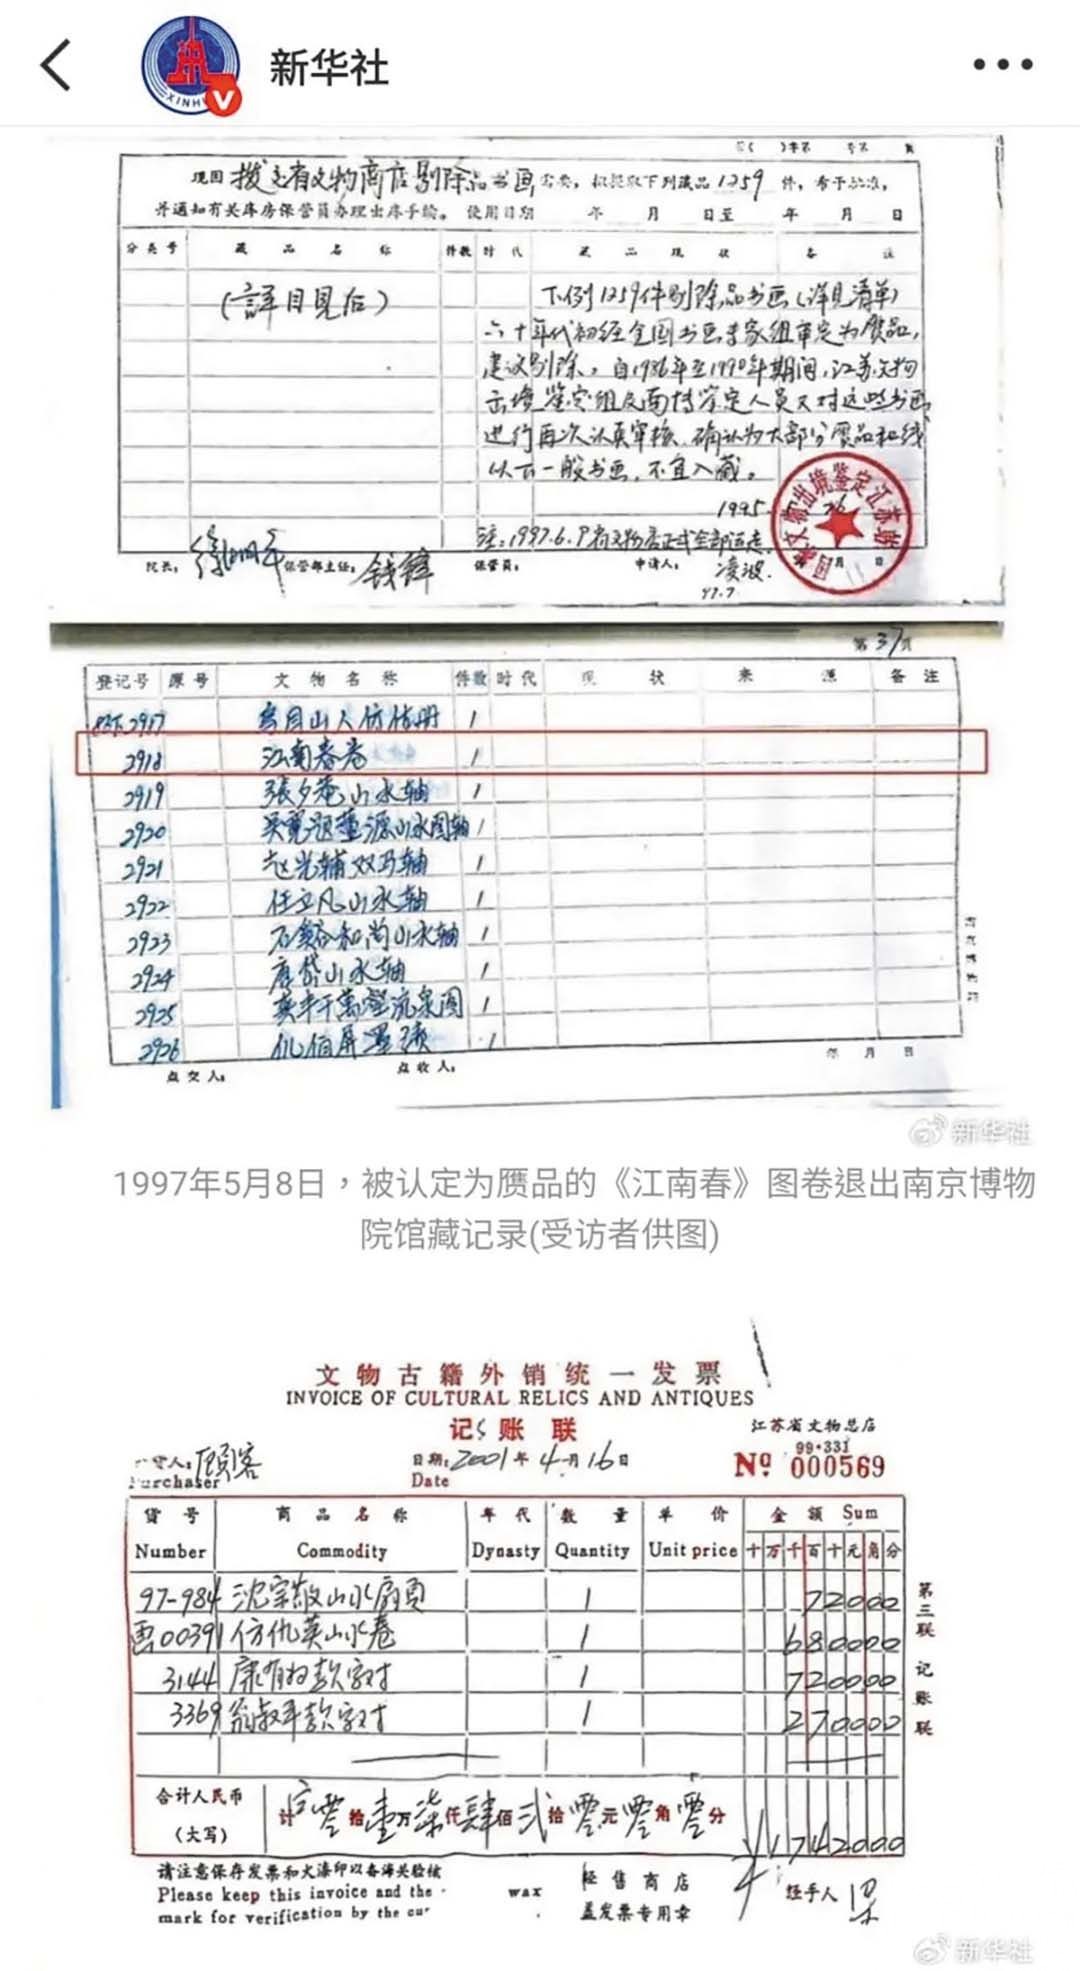 新华社
XINHU
现因 拨交省文物商店剔除品书画 需要，拟提取下列藏品 1259 件，希予批准，
并通知有关库房保管员办理出库手续。 使用日期 年 月 日至 年 月 日
分类号 藏品名称 件数 时代 藏品现状 备注
(詳目見后)
下例1259件剔除品书画(详见清单)
六十年代初经全国书画专家组审定为赝品,
建议剔除。自1986年至1990年期间,江苏文物
出境鉴定组及南博鉴定人员又对这些书画
进行再次认真审核、确认为大部分赝品和线
以下一般书画,不宜入藏。
1995.
注:1997.6.9省文物店正式全部运走.
院长: 徐湖平 保管部主任: 钱锋 保管员: 申请人: 凌波.
97.7
月 日
第 37 页
登记号 原号 文物名称 件数 时代 现状 来源 备注
2917 1
2918 江南春卷 1
2919 張夕菴山水轴 1
2920 吴寛题董源山水图轴 1
2921 赵光辅双马轴 1
2922 任立凡山水轴 1
2923 石溪和尚山水轴 1
2924 唐岱山水轴 1
2925 流泉图 1
2926 仇伯屏墨 1
年 月 日
点交人: 点收人:
新华社
1997年5月8日，被认定为赝品的《江南春》图卷退出南京博物
院馆藏记录(受访者供图)
文物古籍外销统一发票
INVOICE OF CULTURAL RELICS AND ANTIQUES
记账联
江苏省文物总店
99·331
货人: 顾客
日期: 2001年4月16日
Nº 000569
Purchaser
Date
货号 商品名称 年代 数量 单价 金额 Sum
Number Commodity Dynasty Quantity Unit price 十万千百十元角分
97-984 沈宗敬山水扇页 1 72000
画00391 仿仇英山水卷 1 680000
3144 康有为款字对 1 720000
3369 翁叔平款字对 1 270000
合计人民币
(大写)
计 零拾壹万柒仟肆佰贰拾零元零角零分
1742000
第三联 记账联
请注意保存发票和火漆印以备海关检核
Please keep this invoice and the wax
mark for verification by the cu
经售商店
盖发票专用章
经手人
新华社